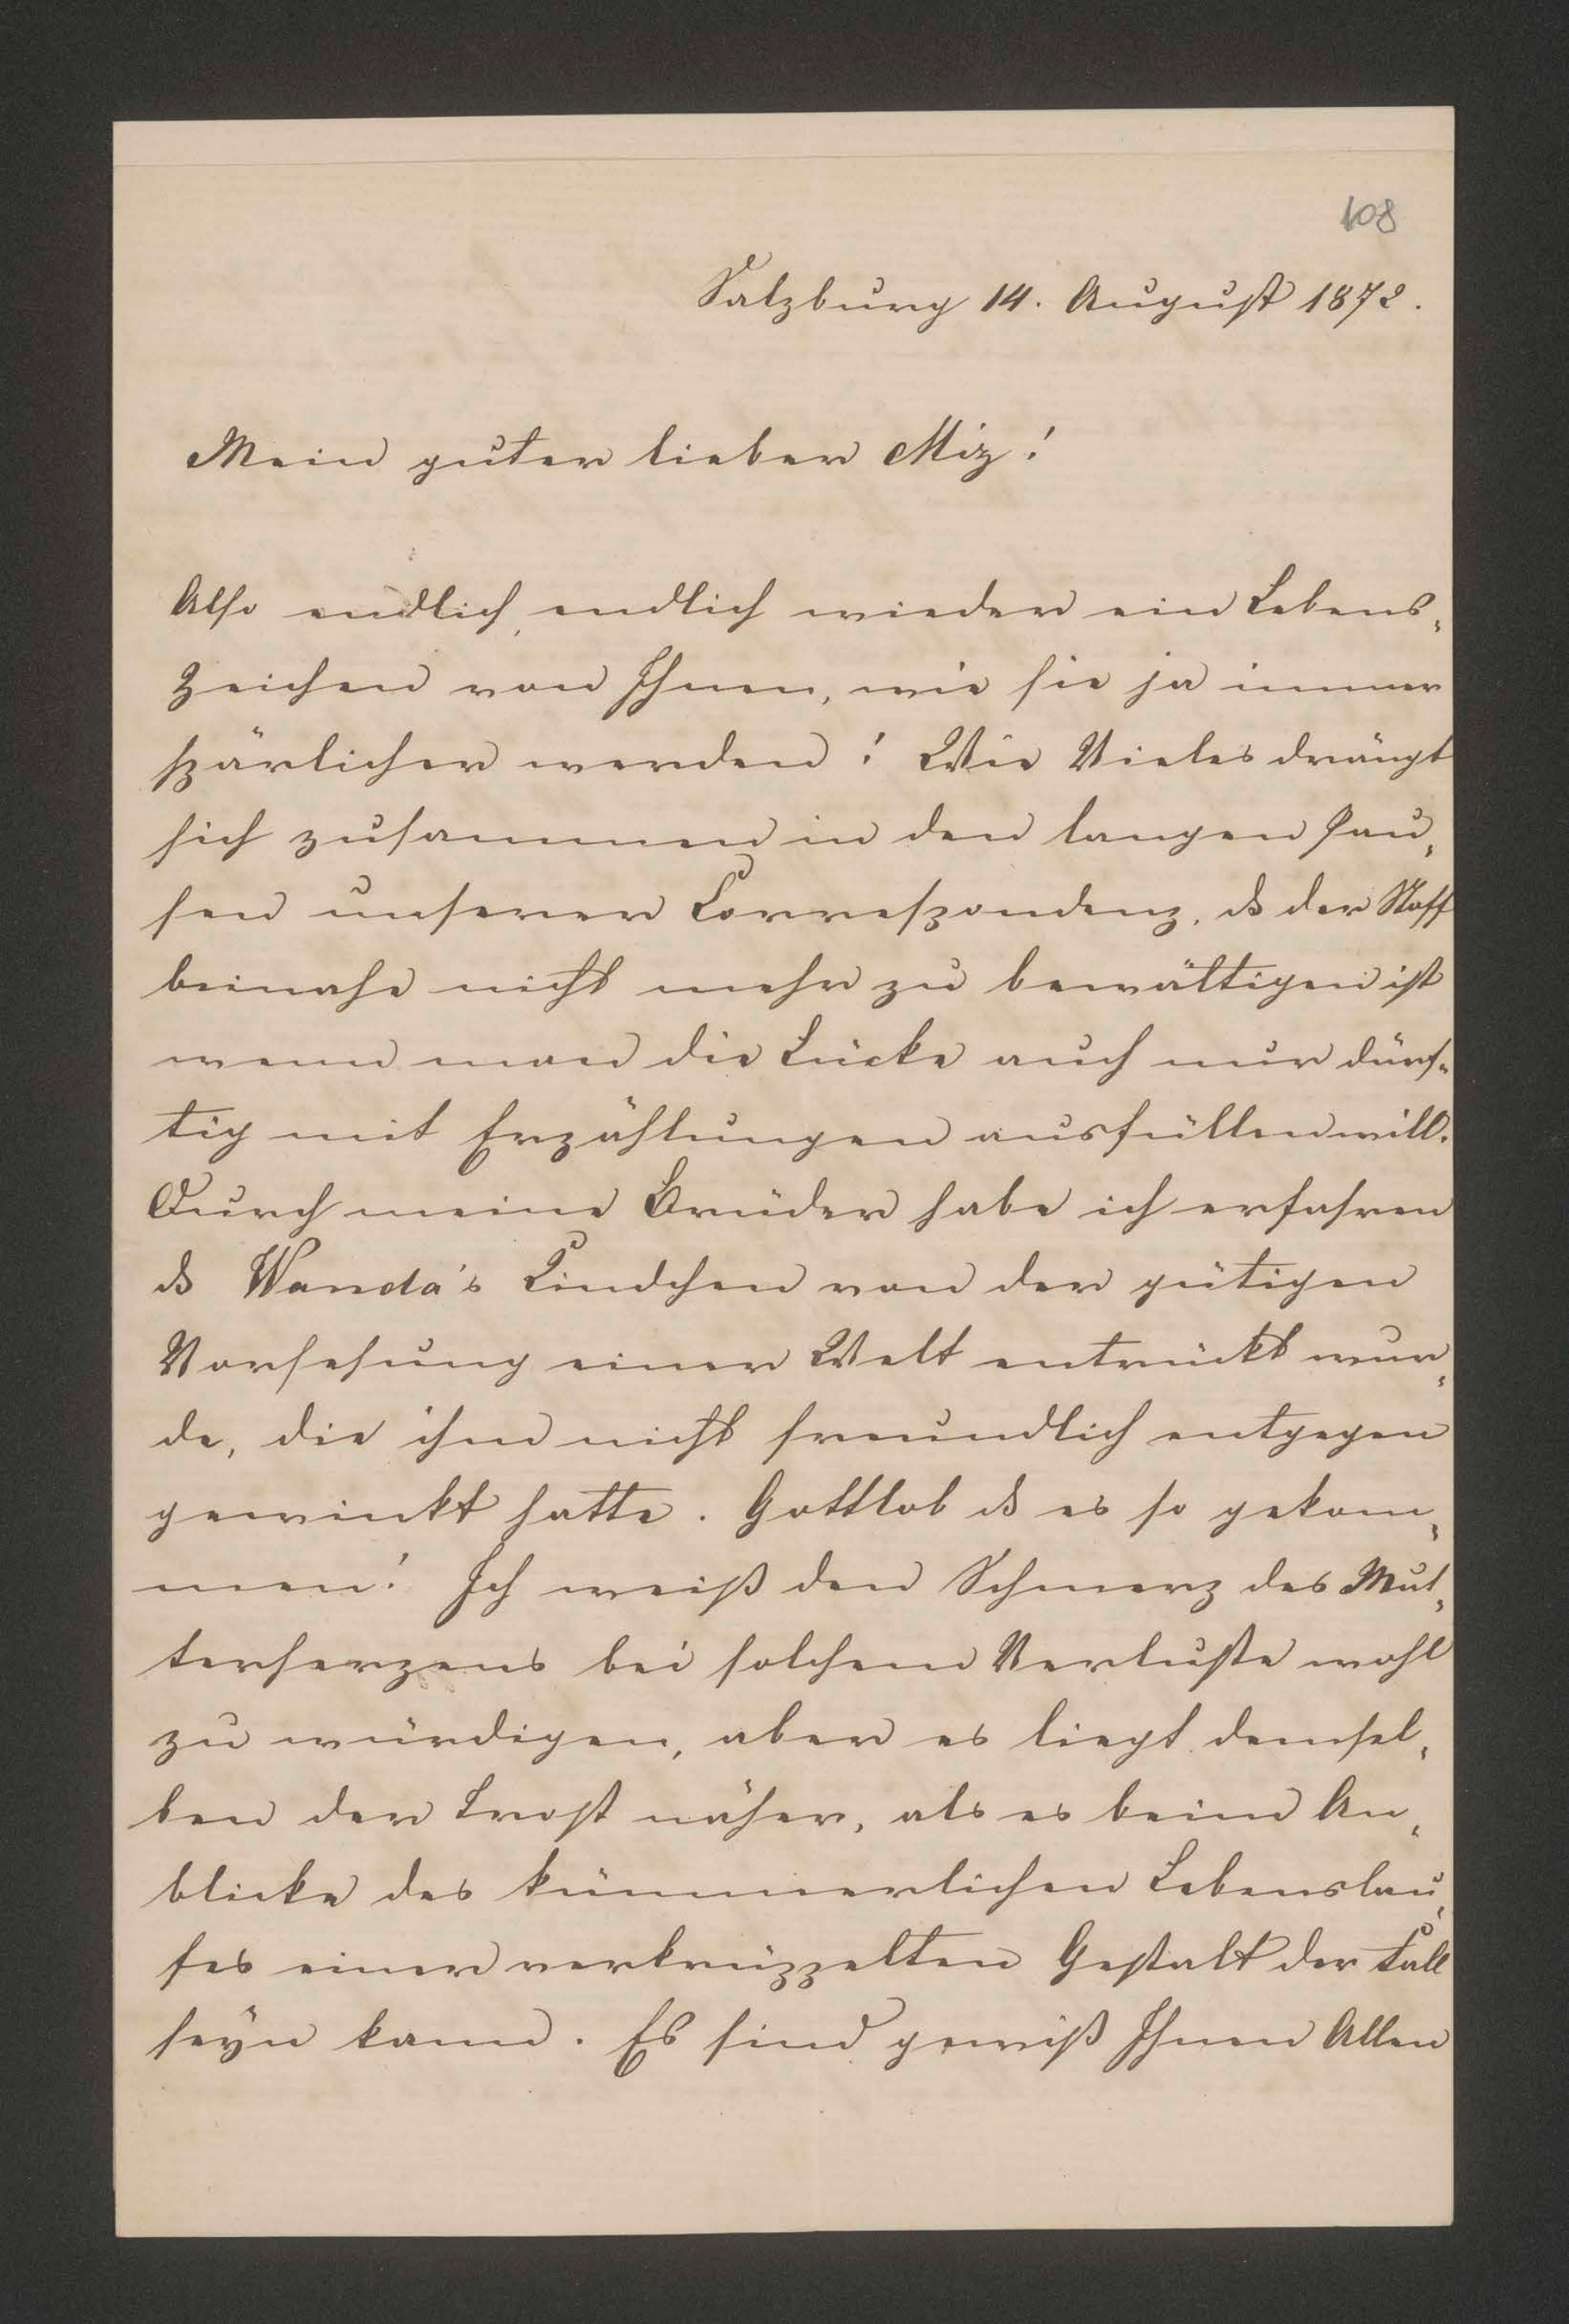 108
Salzburg 14. August 1872.
Mein guter lieber Miz!
Also endlich, endlich wieder ein Lebens-
zeichen von Ihnen, wie sie ja immer
spärlicher werden! Wie Vieles drängt
sich zusammen in den langen Pau-
sen unserer Correspondenz, ds der Stoff
beinahe nicht mehr zu bewältigen ist
wenn man die Lücke auch nur dürf-
tig mit Erzählungen ausfüllen will.
Durch meine Brüder habe ich erfahren
ds Wanda's Kindchen von der gütigen
Vorsehung einer Welt entrückt wur-
de, die ihm nicht freundlich entgegen
gewinkt hatte. Gottlob ds es so gekom-
men! Ich weiß den Schmerz des Mut-
terherzens bei solchem Verluste wohl
zu würdigen, aber es liegt demsel-
ben der Trost näher, als es beim An-
blicke des kümmerlichen Lebenslau-
fes einer verkrüppelten Gestalt der Fall
seyn kann. Es sind gewiß Ihnen Allen